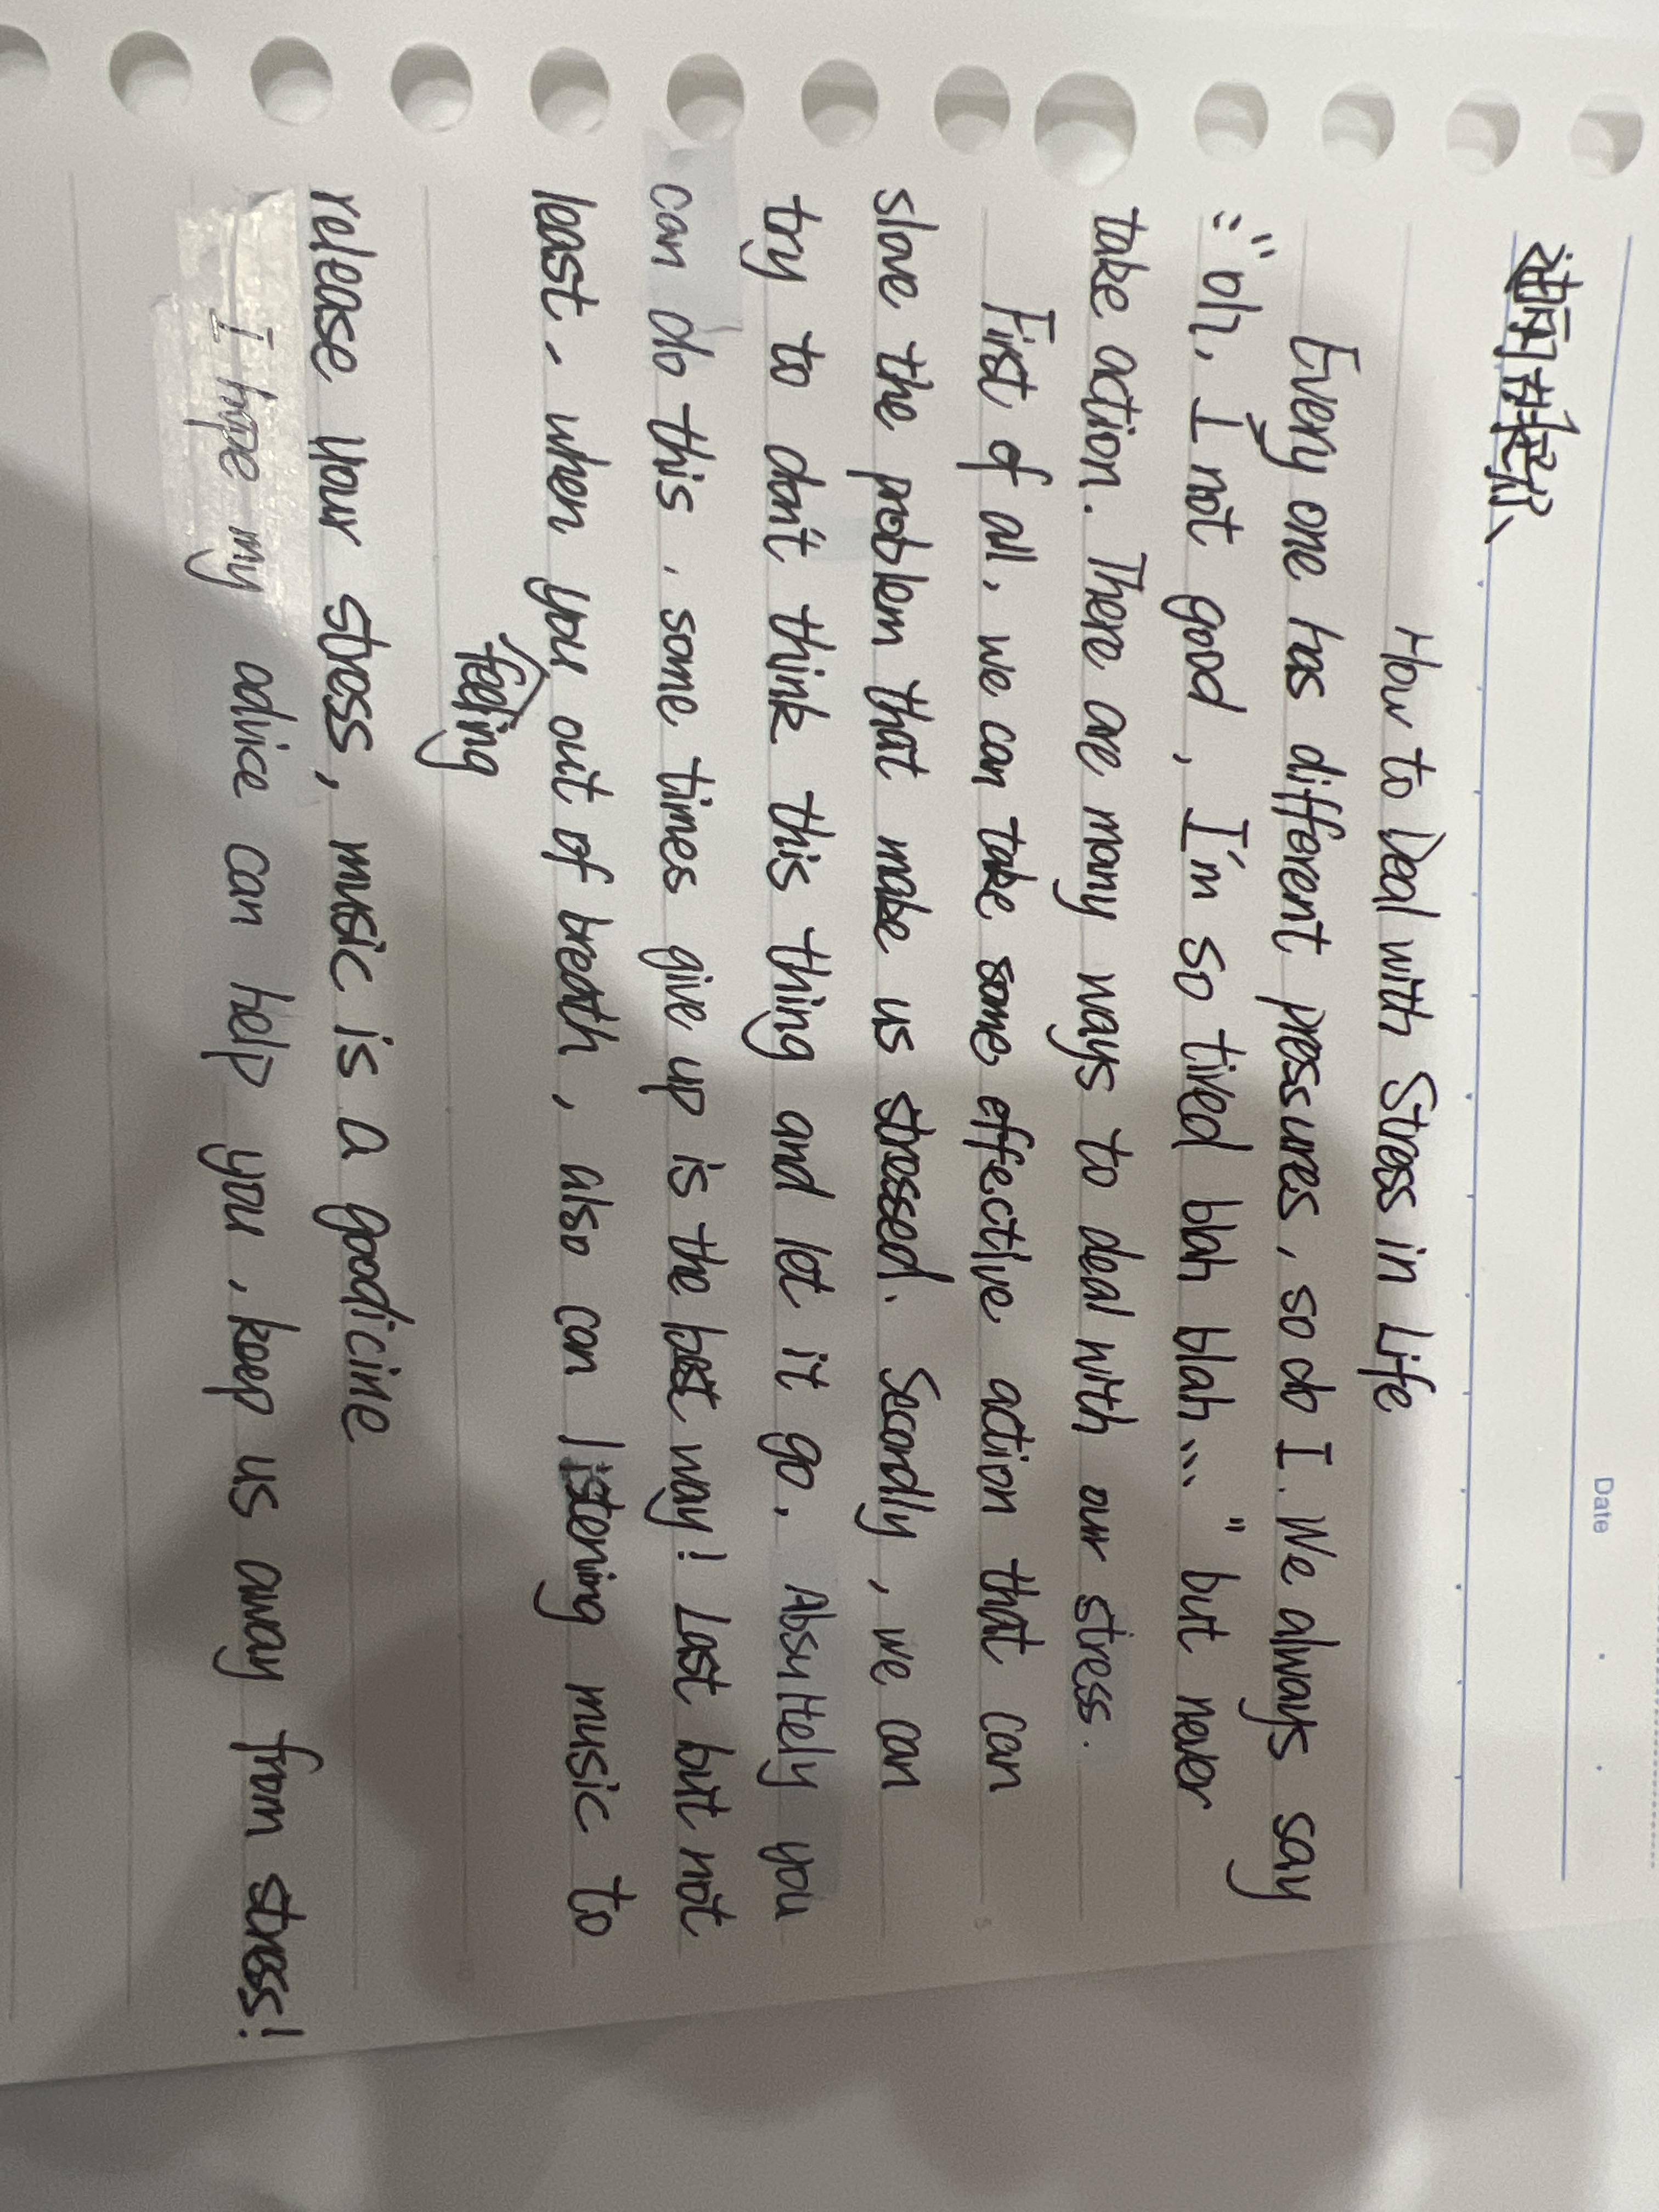 Date
How to Deal with Stress in Life
Every one has different pressures, so do I. We always say
: "oh, I not good, I'm so tired blah blah... " but never
take action. There are many ways to deal with our stress.
First of all, we can take some effective action that can
slove the problem that make us stressed. Secondly, we can
try to don't think this thing and let it go. Absultely you
can do this, some times give up is the best way! Last but not
least, when you out of breath, also can listening music to
feeling
release your stress, music is a goodicine
I hype my advice can help you, keep us away from stress!